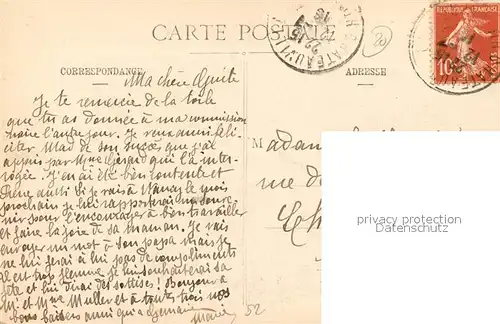 CARTE POSTALE
RÉPUBLIQUE FRANÇAISE
10
20
CORRESPONDANCE
ADRESSE
Ma chère Guite
Je te remercie de la toile
que tu as donnée à ma commission
naire l'autre jour. Je veux aussi féli
citer Mad de son succès que j'ai
appris par Mme Gérard qui l'a inter
rogée. J'en ai été bien contente et
René aussi. Si je vais à Nancy le mois
prochain je lui rapporterai un souve
nir pour l'encourager à bien travailler
et faire la joie de sa maman. Je vais
envoyer un mot à son papa mais je
ne lui ferai à lui pas de compliments
il est trop flemme, je lui souhaiterai sa
fête et lui dirai des sottises! Bonjour à
Mr et Mme Muller et à toute nos
bons baisers ainsi qu'à Germaine
Marie
52
Madame
rue de
Ch
privacy protection
Datenschutz